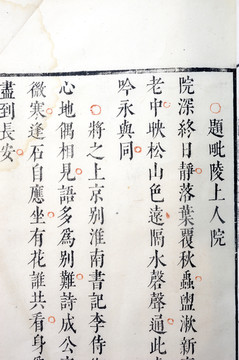 題毗陵上人院
院深終日靜落葉覆秋蟲盥漱新
老中映松山色遠隔水磬聲通此
吟永與同
將之上京別淮南書記李侍
心地偶相見語多爲別難詩成公
微寒逢石自應坐有花誰共看身
盡到長安